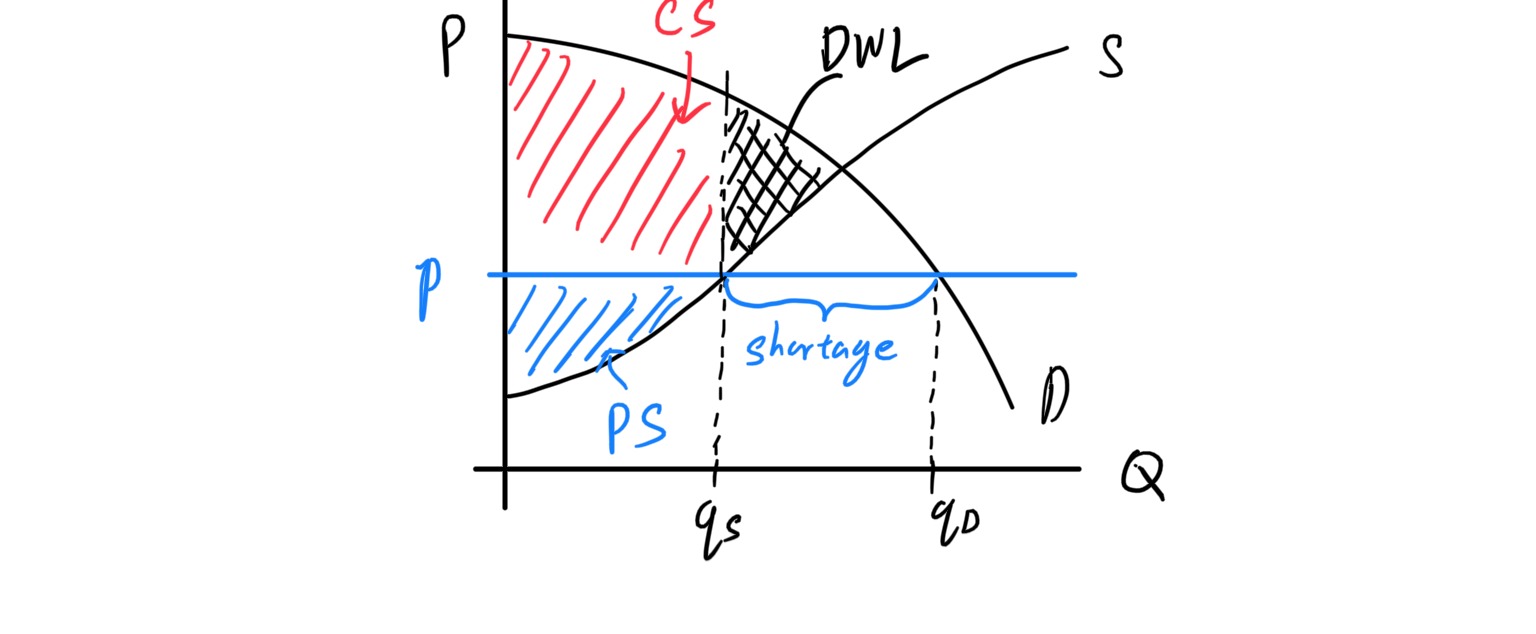 CS
P
DWL
S
P
shortage
PS
D
Q
qs
qD